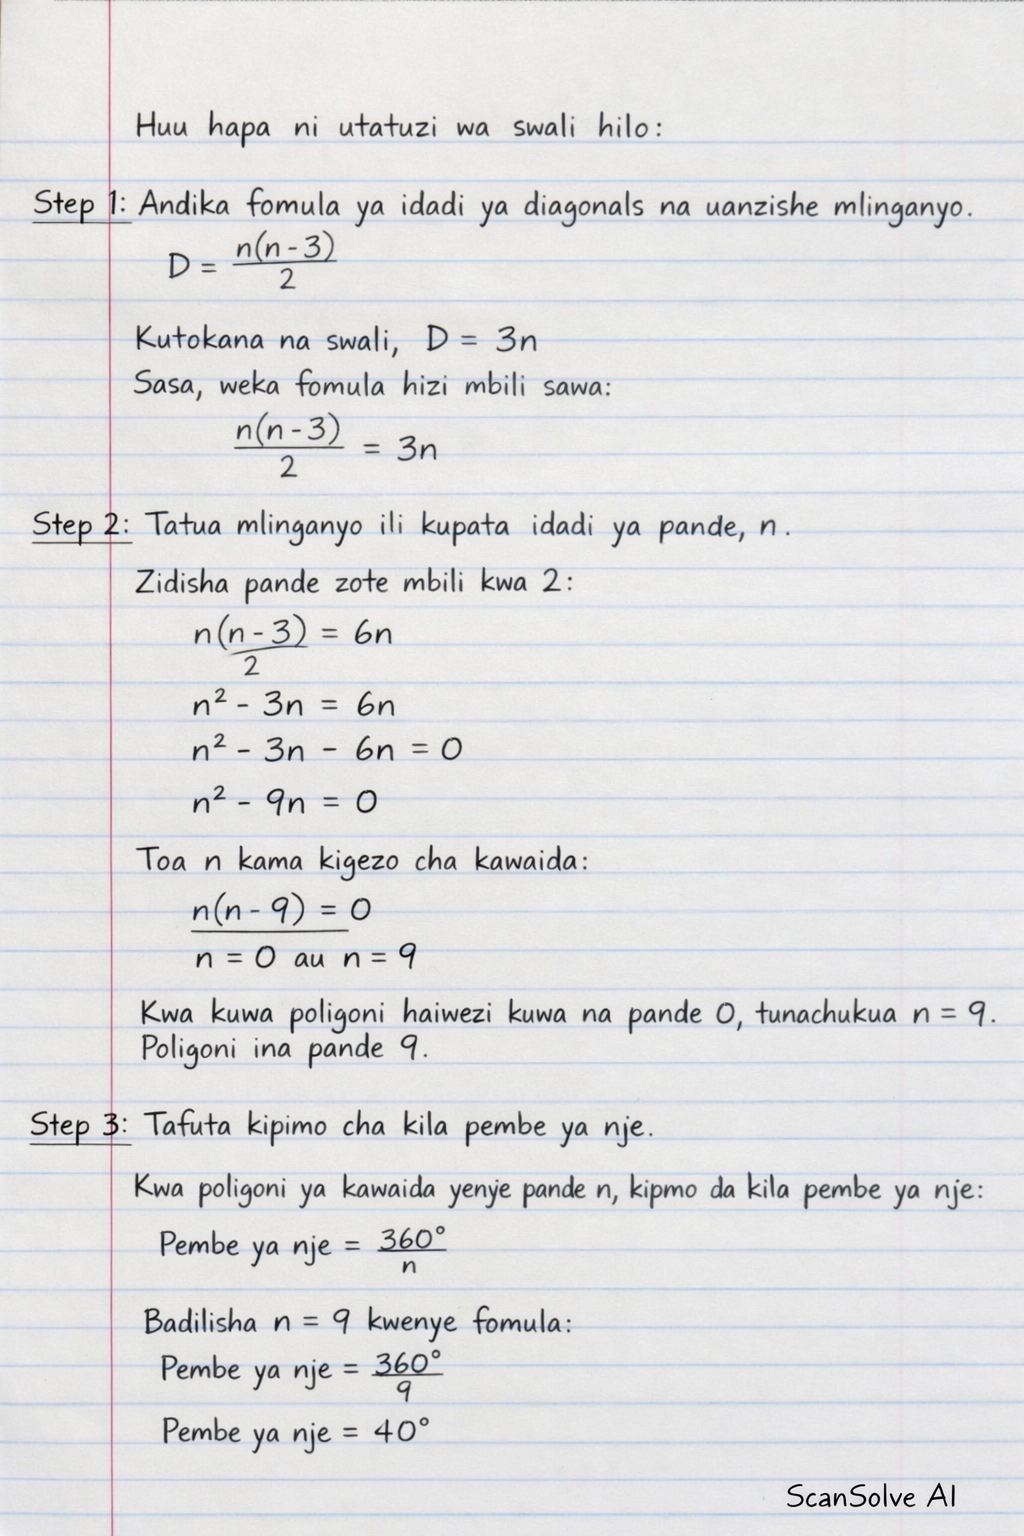 Huu hapa ni utatuzi wa swali hilo:
Step 1: Andika fomula ya idadi ya diagonals na uanzishe mlinganyo.
D = n(n-3)/2
Kutokana na swali, D = 3n
Sasa, weka fomula hizi mbili sawa:
n(n-3)/2 = 3n
Step 2: Tatua mlinganyo ili kupata idadi ya pande, n.
Zidisha pande zote mbili kwa 2:
n(n-3)/2 = 6n
n² - 3n = 6n
n² - 3n - 6n = 0
n² - 9n = 0
Toa n kama kigezo cha kawaida:
n(n-9) = 0
n = 0 au n = 9
Kwa kuwa poligoni haiwezi kuwa na pande 0, tunachukua n = 9.
Poligoni ina pande 9.
Step 3: Tafuta kipimo cha kila pembe ya nje.
Kwa poligoni ya kawaida yenye pande n, kipmo da kila pembe ya nje:
Pembe ya nje = 360°/n
Badilisha n = 9 kwenye fomula:
Pembe ya nje = 360°/9
Pembe ya nje = 40°
ScanSolve AI